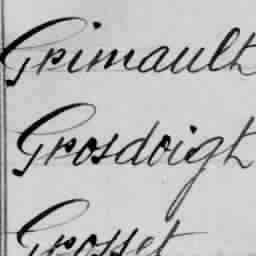 Grimault
Grosdoigt
Grosset